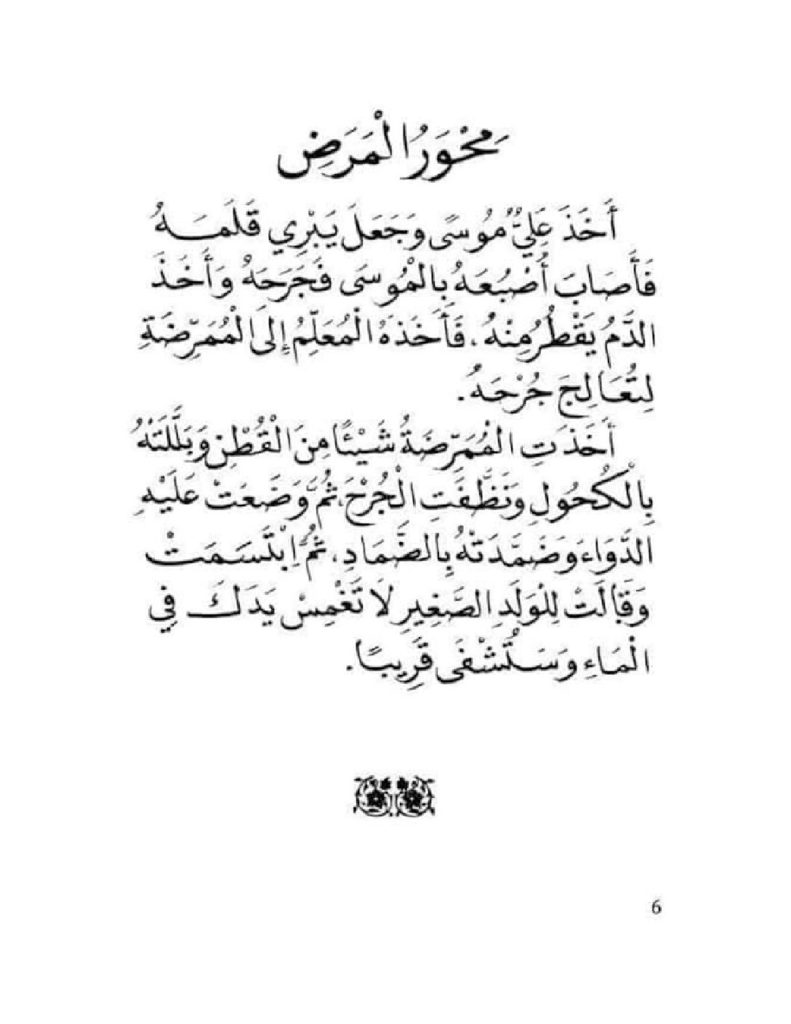 مَحْوَرُ الْمَرَضِ
أَخَذَ عَلِيٌّ مُوسًى وَجَعَلَ يَبْرِي قَلَمَهُ
فَأَصَابَ أُصْبُعَهُ بِالْمُوسَى فَجَرَحَهُ وَأَخَذَ
الدَّمُ يَقْطُرُ مِنْهُ. فَأَخَذَهُ الْمُعَلِّمُ إِلَى الْمُمَرِّضَةِ
لِتُعَالِجَ جُرْحَهُ.
أَخَذَتِ الْمُمَرِّضَةُ شَيْئًا مِنَ الْقُطْنِ وَبَلَّلَتْهُ
بِالْكُحُولِ وَنَظَّفَتِ الْجُرْحَ، ثُمَّ وَضَعَتْ عَلَيْهِ
الدَّوَاءَ وَضَمَّدَتْهُ بِالضَّمَادِ. ثُمَّ ابْتَسَمَتْ
وَقَالَتْ لِلْوَلَدِ الصَّغِيرِ لَا تَغْمِسْ يَدَكَ فِي
الْمَاءِ وَسَتُشْفَى قَرِيبًا.
6